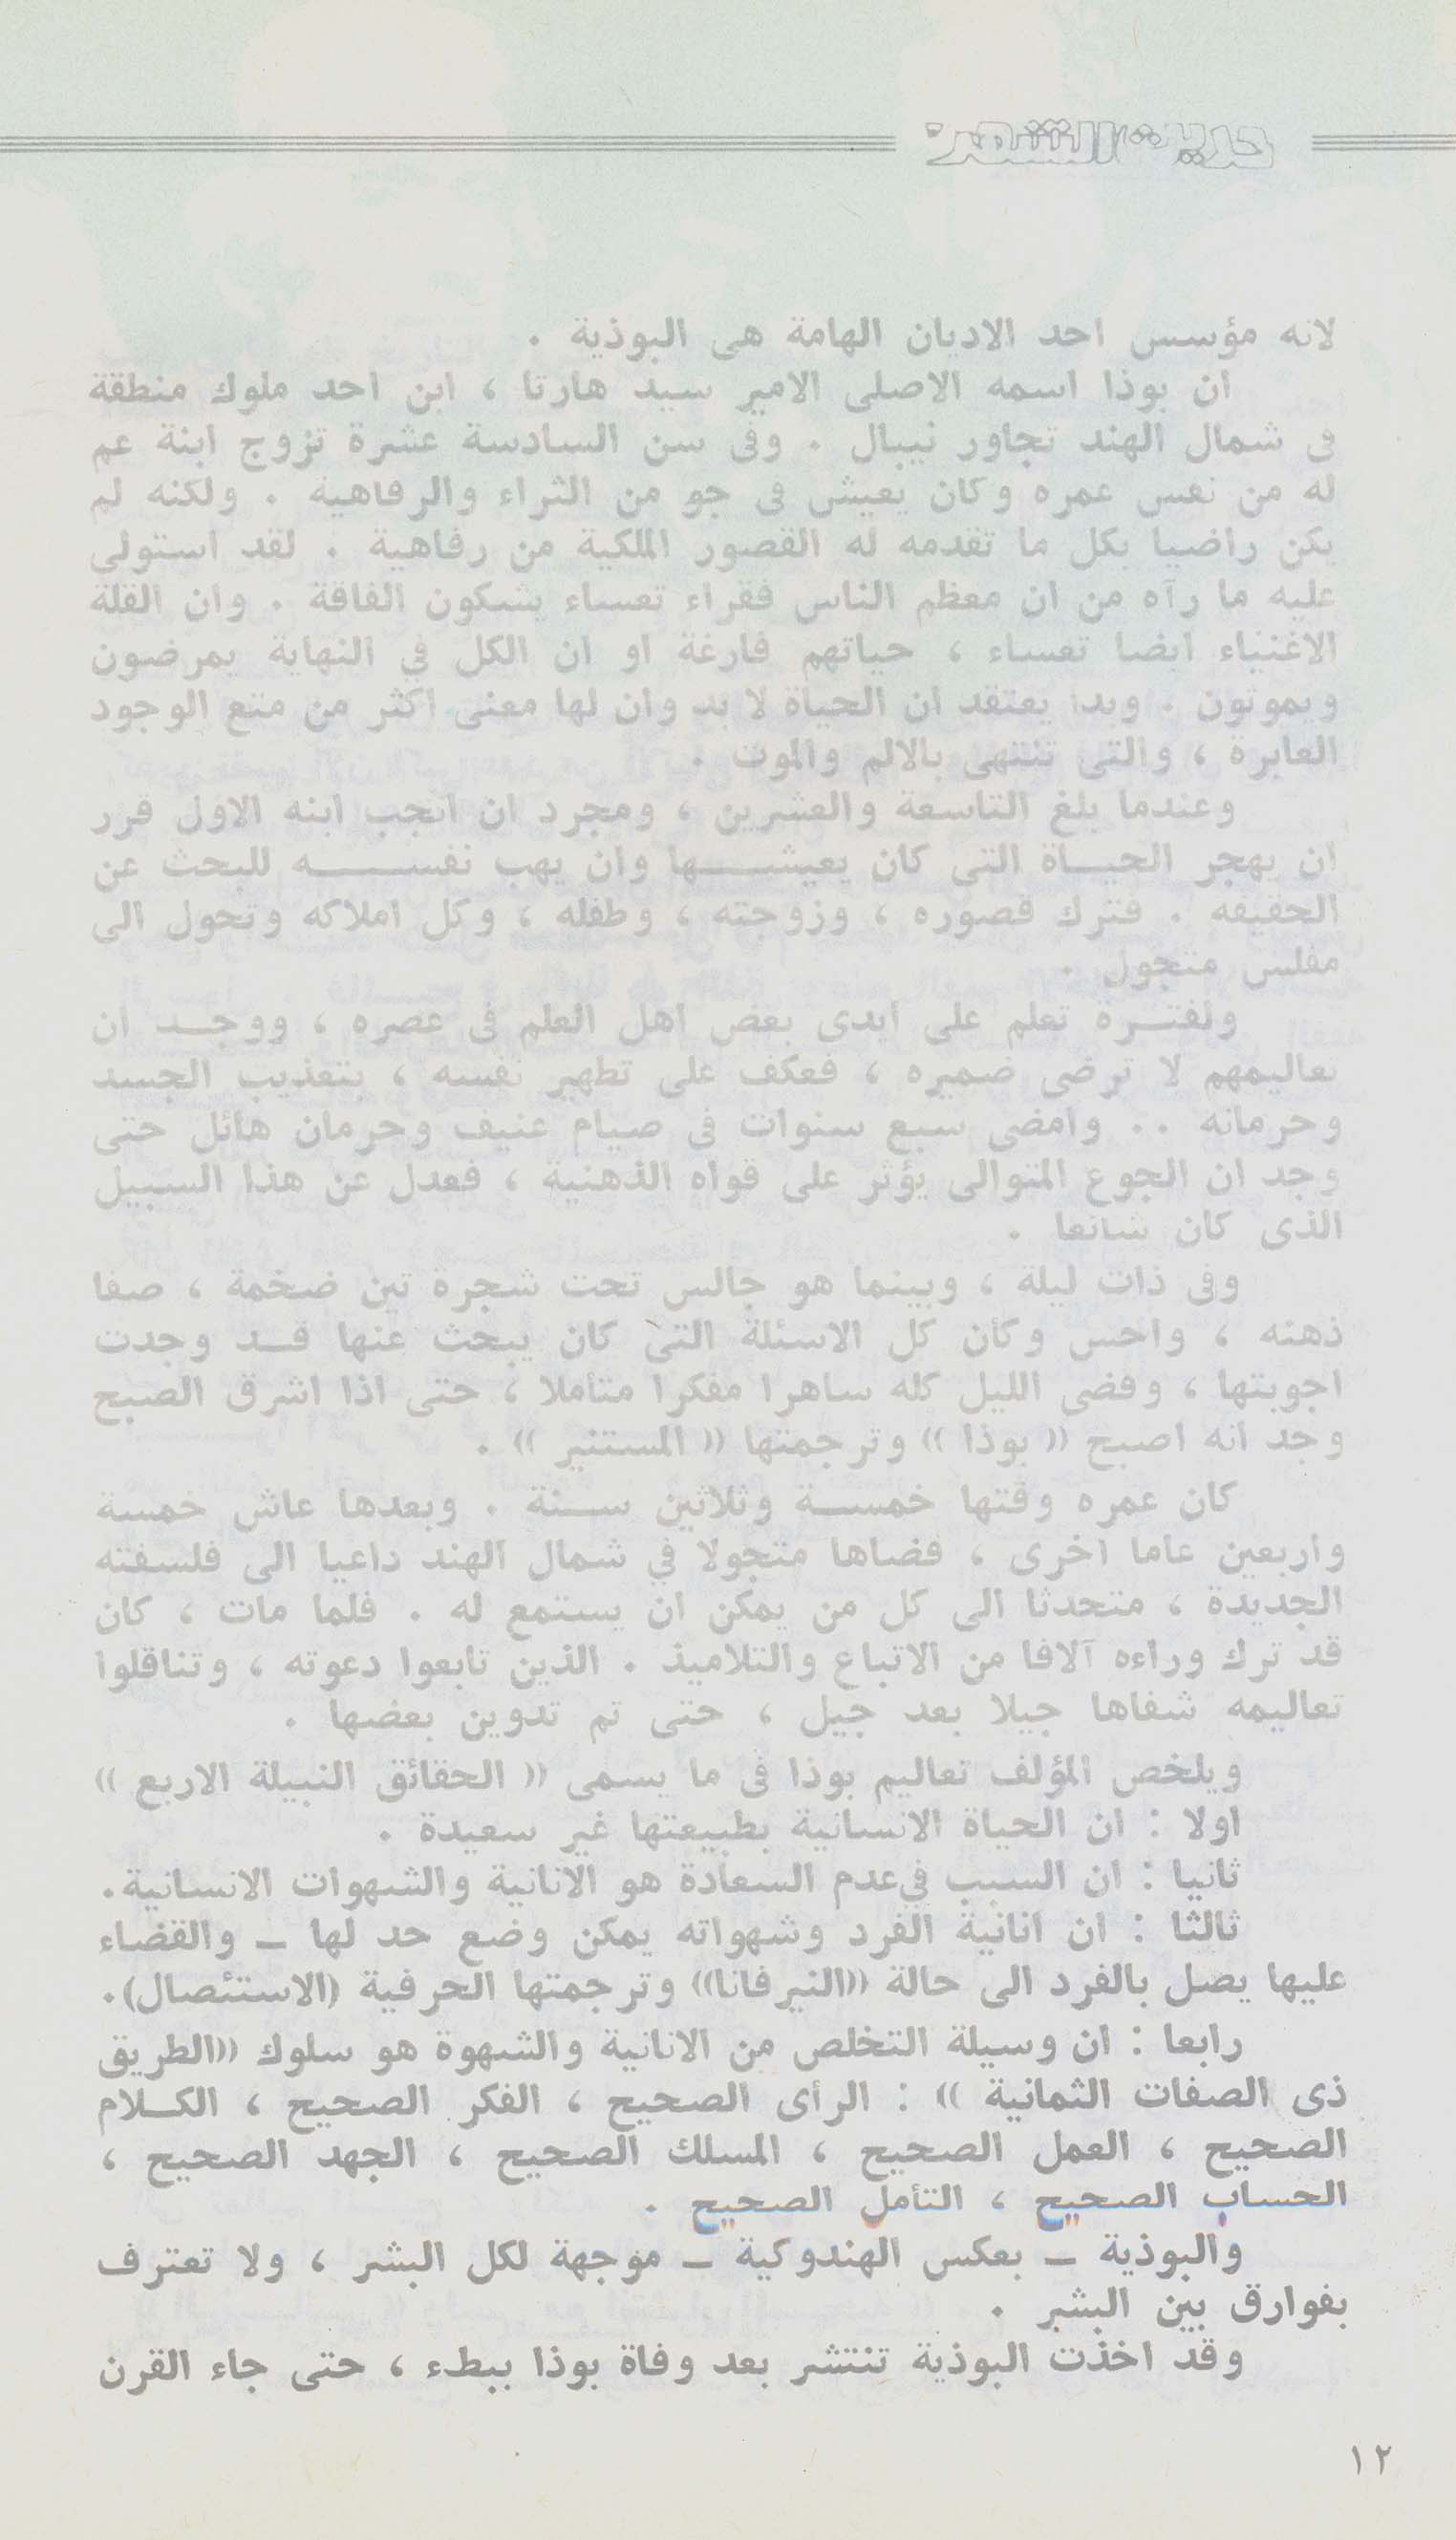 حديث الشهر
لانه مؤسس احد الاديان الهامة هى البوذية .
ان بوذا اسمه الاصلى الامير سيد هارتا ، ابن احد ملوك منطقة
فى شمال الهند تجاور نيبال . وفى سن السادسة عشرة تزوج ابنة عم
له من نفس عمره وكان يعيش فى جو من الثراء والرفاهية . ولكنه لم
يكن راضيا بكل ما تقدمه له القصور الملكية من رفاهية . لقد استولى
عليه ما رآه من ان معظم الناس فقراء تعساء يشكون الفاقة . وان القلة
الاغنياء ايضا تعساء ، حياتهم فارغة او ان الكل في النهاية يمرضون
ويموتون . وبدا يعتقد ان الحياة لا بد وان لها معنى اكثر من متع الوجود
العابرة ، والتى تنتهى بالالم والموت .
وعندما بلغ التاسعة والعشرين ، ومجرد ان انجب ابنه الاول قرر
ان يهجر الحيـاة التى كان يعيشـــها وان يهب نفســـه للبحث عن
الحقيقه . فترك قصوره ، وزوجته ، وطفله ، وكل املاكه وتحول الى
مفلس متجول .
ولفتـرة تعلم على أيدى بعض اهل العلم فى عصره ، ووجـد ان
تعاليمهم لا ترضى ضميره ، فعكف على تطهير نفسه ، بتعذيب الجسد
وحرمانه .. وامضى سبع سنوات فى صيام عنيف وحرمان هائل حتى
وجد ان الجوع المتوالى يؤثر على قواه الذهنية ، فعدل عن هذا السبيل
الذى كان شائعا .
وفى ذات ليلة ، وبينما هو جالس تحت شجرة تين ضخمة ، صفا
ذهنه ، واحس وكأن كل الاسئلة التى كان يبحث عنها قـد وجدت
اجوبتها ، وقضى الليل كله ساهرا مفكرا متاملا ، حتى اذا اشرق الصبح
وجد انه اصبح (( بوذا )) وترجمتها (( المستنير )) .
كان عمره وقتها خمسـة وثلاثين سـنة . وبعدها عاش خمسة
واربعين عاما اخرى ، قضاها متجولا في شمال الهند داعيا الى فلسفته
الجديدة ، متحدثا الى كل من يمكن ان يستمع له . فلما مات ، كان
قد ترك وراءه آلافا من الاتباع والتلاميذ . الذين تابعوا دعوته ، وتناقلوا
تعاليمه شفاها جيلا بعد جيل ، حتى تم تدوين بعضها .
ويلخص المؤلف تعاليم بوذا فى ما يسمى (( الحقائق النبيلة الاربع ))
اولا : ان الحياة الانسانية بطبيعتها غير سعيدة .
ثانيا : ان السبب في عدم السعادة هو الانانية والشهوات الانسانية.
ثالثا : ان انانية الفرد وشهواته يمكن وضع حد لها ــ والقضاء
عليها يصل بالفرد الى حالة ((النيرفانا)) وترجمتها الحرفية (الاستئصال).
رابعا : ان وسيلة التخلص من الانانية والشهوة هو سلوك ((الطريق
ذى الصفات الثمانية )) : الرأى الصحيح ، الفكر الصحيح ، الكـلام
الصحيح ، العمل الصحيح ، المسلك الصحيح ، الجهد الصحيح ،
الحساب الصحيح ، التأمل الصحيح .
والبوذية ــ بعكس الهندوكية ــ موجهة لكل البشر ، ولا تعترف
بفوارق بين البشر .
وقد اخذت البوذية تنتشر بعد وفاة بوذا ببطء ، حتى جاء القرن
١٢